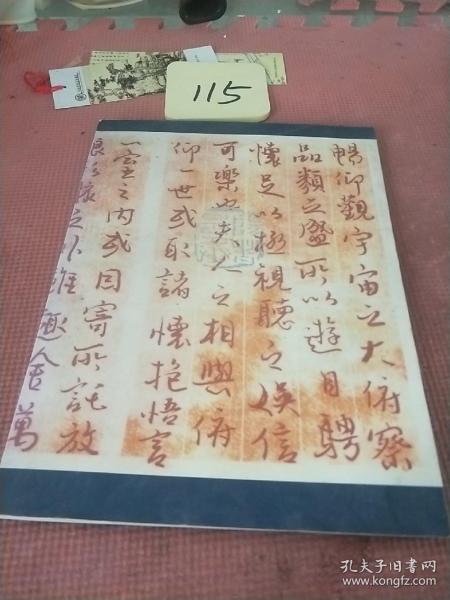 115
暢仰觀宇宙之大俯察
品類之盛所以遊目騁
懷足以極視聽之娛信
可樂也夫人之相與俯
仰一世或取諸懷抱悟言
一室之内或因寄所託放
浪形骸之外雖趣舍萬
孔夫子旧书网
www.kongfz.com